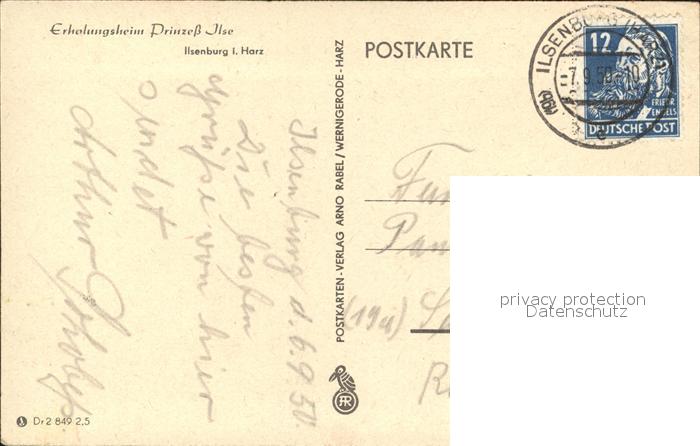 Erholungsheim Prinzeß Ilse
Ilsenburg i. Harz
Ilsenburg d. 6.9.50.
Die besten
Grüße von hier
sendet
Arthur
Dr 2 849 2,5
POSTKARTEN-VERLAG ARNO RABEL / WERNIGERODE-HARZ
POSTKARTE
ILSENBURG (HARZ)
-7.9.50.-10
12
FRIEDR.
ENGELS
DEUTSCHE POST
(19a)
privacy protection
Datenschutz